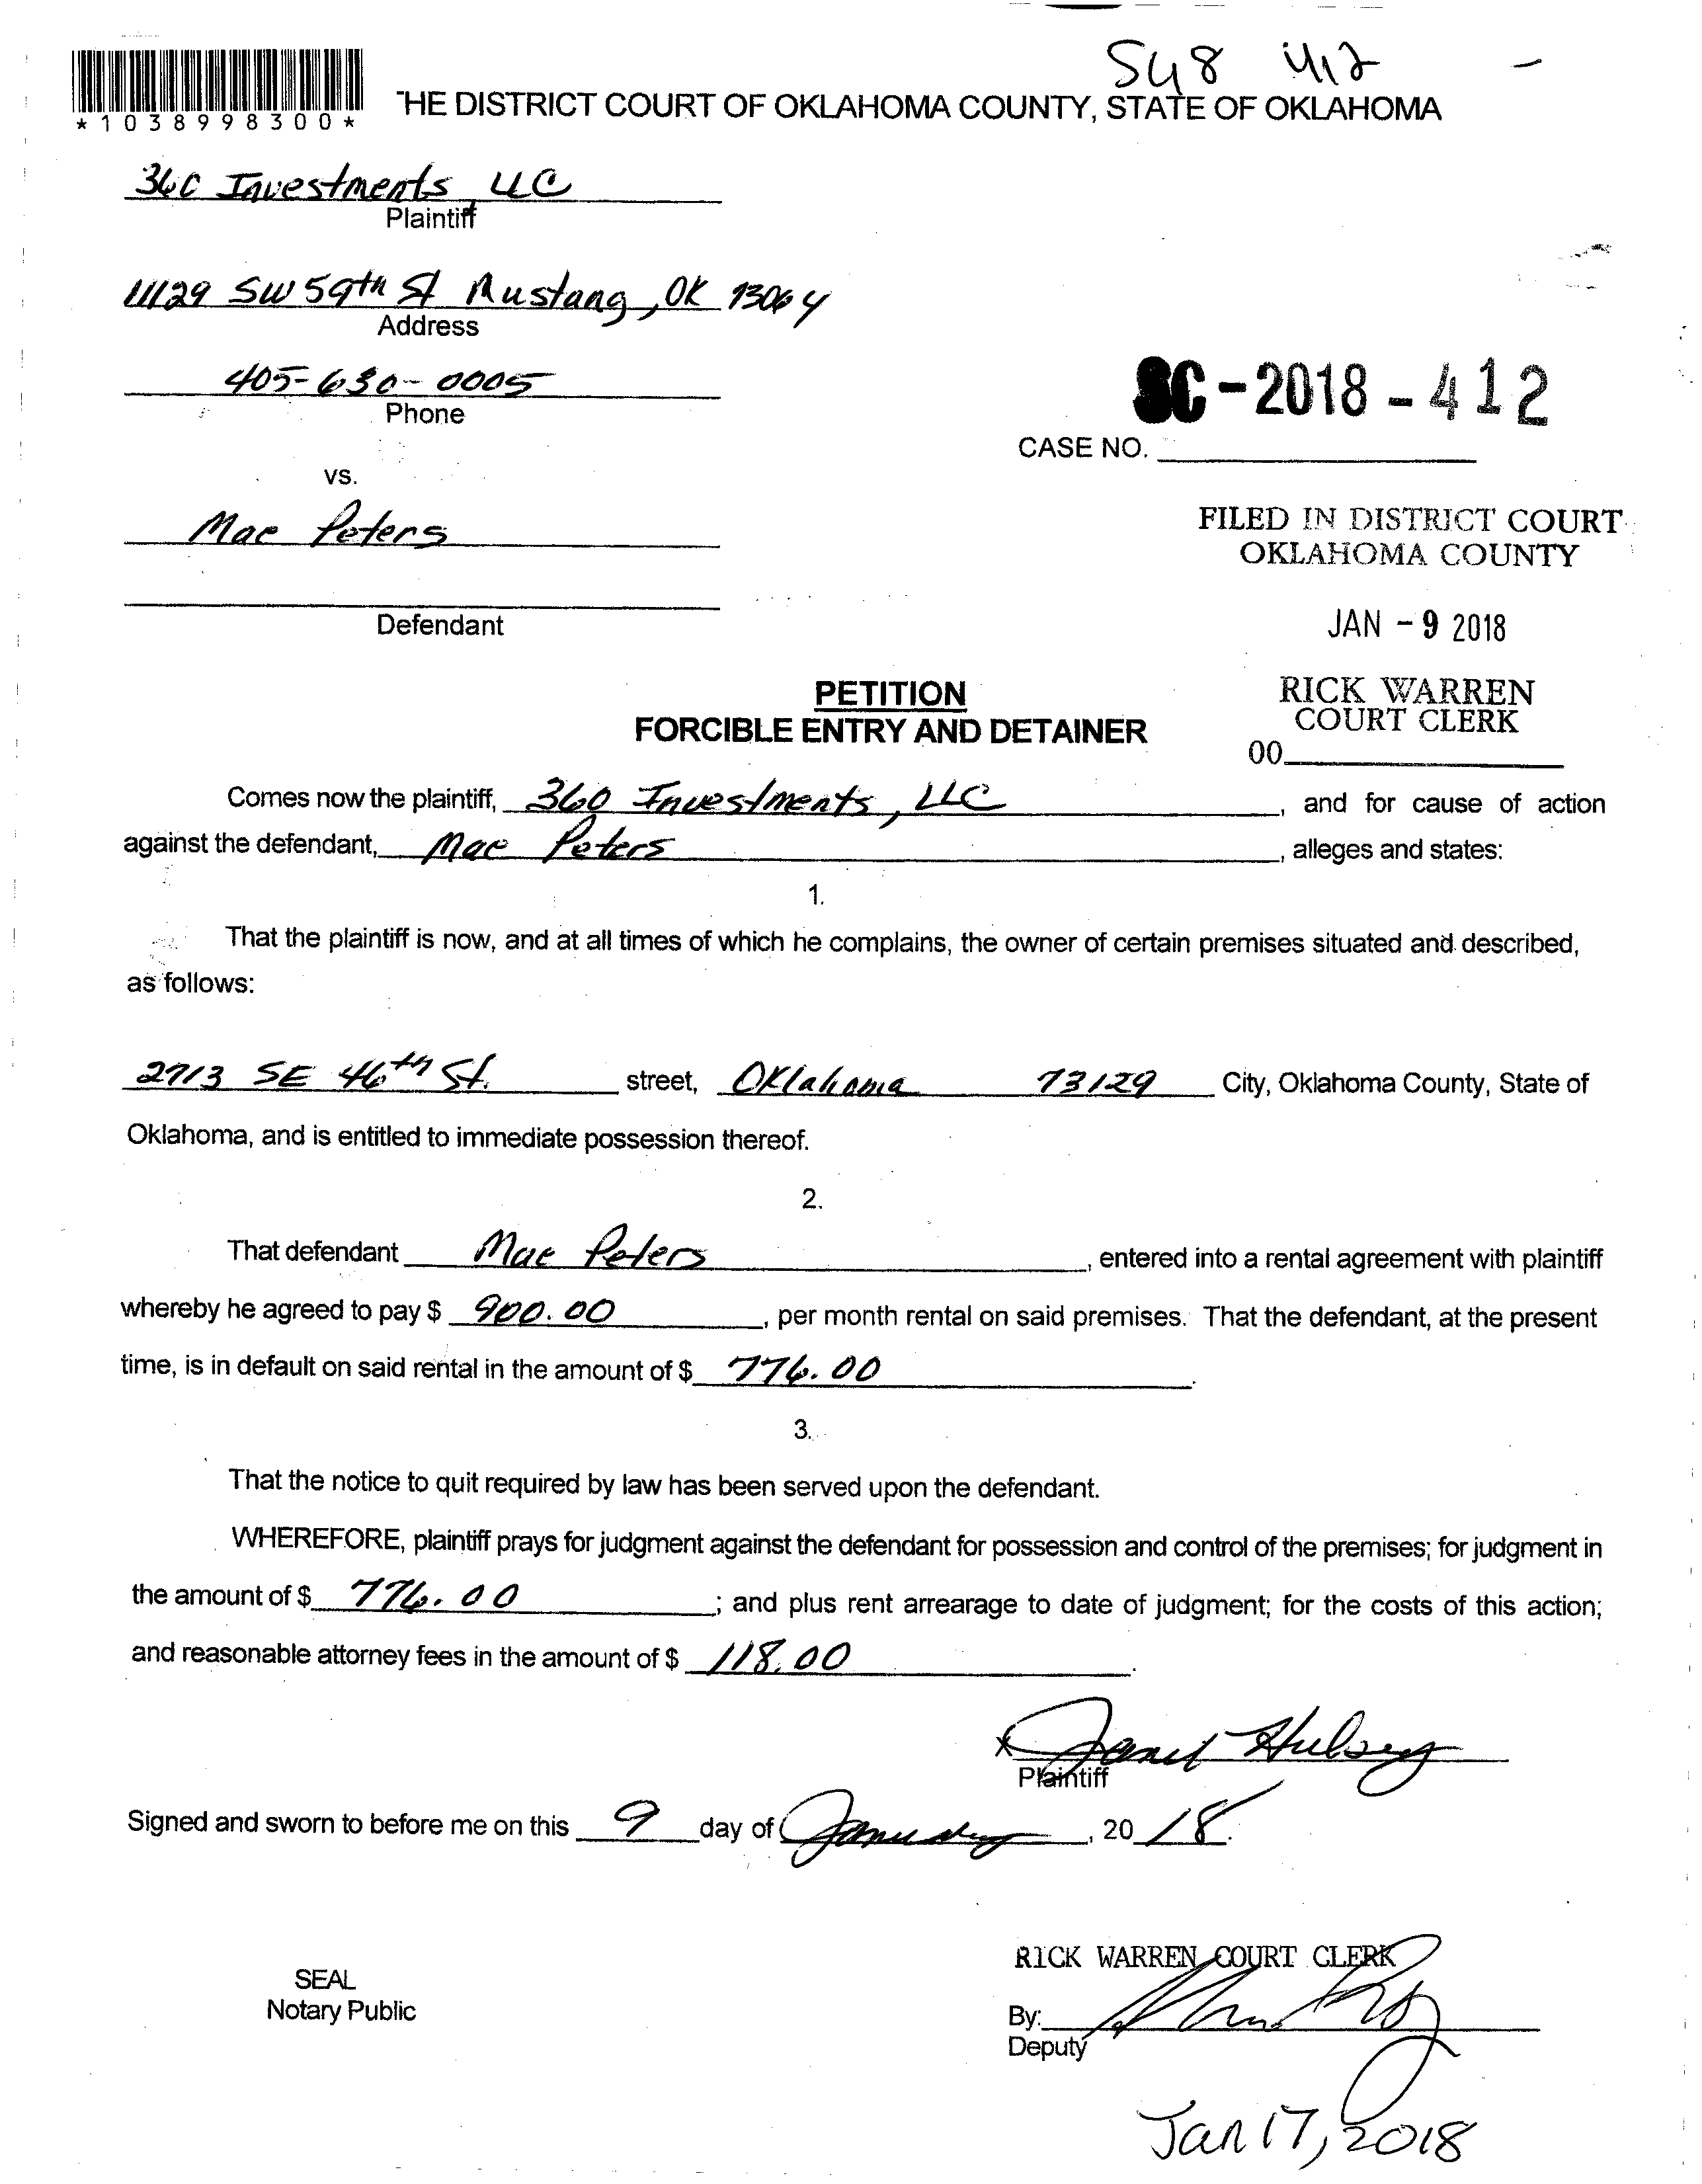 S48 412 -
*1038998300*
THE DISTRICT COURT OF OKLAHOMA COUNTY, STATE OF OKLAHOMA
360 Investments, LLC
Plaintiff
11129 SW 59th St Mustang, OK 73064
Address
405-630-0005
Phone
SC-2018-412
CASE NO.
vs.
Mae Peters
Defendant
FILED IN DISTRICT COURT
OKLAHOMA COUNTY
JAN -9 2018
RICK WARREN
COURT CLERK
00
PETITION
FORCIBLE ENTRY AND DETAINER
Comes now the plaintiff, 360 Investments, LLC, and for cause of action
against the defendant, Mae Peters, alleges and states:
1.
That the plaintiff is now, and at all times of which he complains, the owner of certain premises situated and described,
as follows:
2713 SE 46th St. street, Oklahoma 73129 City, Oklahoma County, State of
Oklahoma, and is entitled to immediate possession thereof.
2.
That defendant Mae Peters, entered into a rental agreement with plaintiff
whereby he agreed to pay $ 900.00, per month rental on said premises. That the defendant, at the present
time, is in default on said rental in the amount of $ 776.00.
3.
That the notice to quit required by law has been served upon the defendant.
WHEREFORE, plaintiff prays for judgment against the defendant for possession and control of the premises; for judgment in
the amount of $ 776.00; and plus rent arrearage to date of judgment; for the costs of this action;
and reasonable attorney fees in the amount of $ 118.00.
x Janet Hulsey
Plaintiff
Signed and sworn to before me on this 9 day of January, 2018.
SEAL
Notary Public
RICK WARREN COURT CLERK
By:
Deputy
Jan 17, 2018